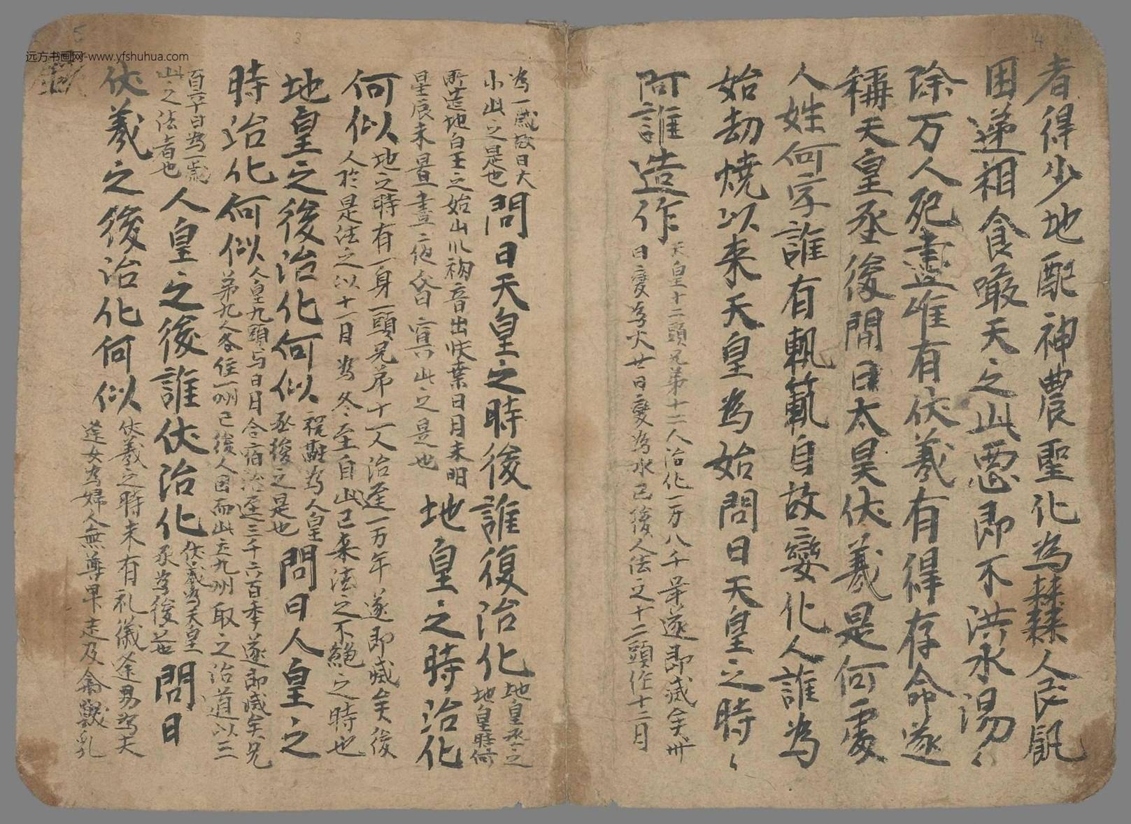 远方书画网-www.yfshuhua.com
者得少地配神農聖化為人民飢
困遞相食噉天之此惡即不洪水湯〻
除万人死盡唯有伏羲有得存命遂
稱天皇丞後問曰太昊伏羲是何處
人姓何字誰有軌範自故變化人誰為
始劫燒以来天皇為始問曰天皇之時〻
阿誰造作
天皇十二頭兄弟十二人治化一万八千年遂即滅矣卅
日變為火廿日變為水已後人法之十二頭作十二月
為一歲故曰大
小此之是也
問曰天皇之時後誰復治化
地皇丞之
地皇時何
所造地白王之始山川初音出伏葉日月未明
星辰未量晝夜合冥此之是也
地皇之時治化
何似
地之時有一身一頭兄弟十一人治逕一万年遂即滅矣後
人於是法之以十一月為冬至自此已来法之不絕之時也
地皇之後治化何似
為人皇
丞後之是也
問曰人皇之
時治化何似
人皇九頭与日月合治逕三千六百季遂即滅矣兄
弟九人各住一州已後人因而此立九州取之治道以三
百六十日為一歲
此之法者也
人皇之後誰伏治化
伏羲為天皇
丞為後世
問曰
伏羲之後治化何似
伏羲之時未有礼儀逢男為夫
逢女為婦人無尊卑走及禽獸乳